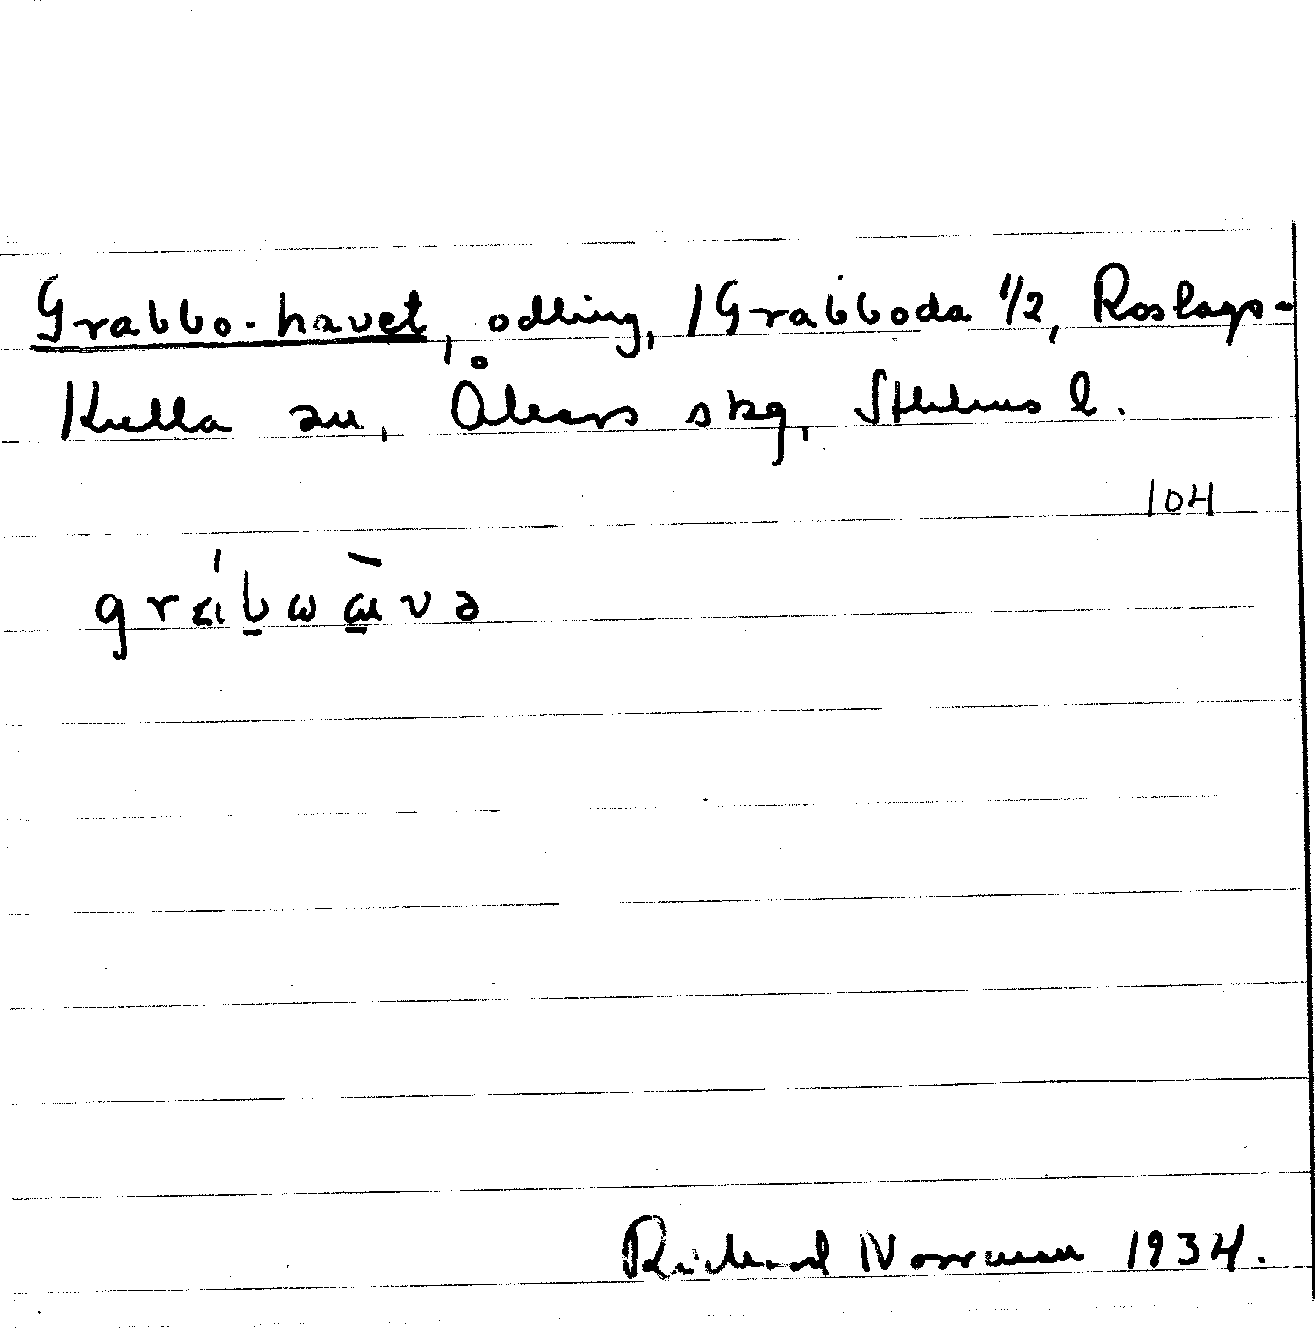 Grabbo-havet, odling, /Grabboda 1/2, Roslags-
Kulla sn, Åkers skg, Sthlms l.
104
Richard Norrman 1934.